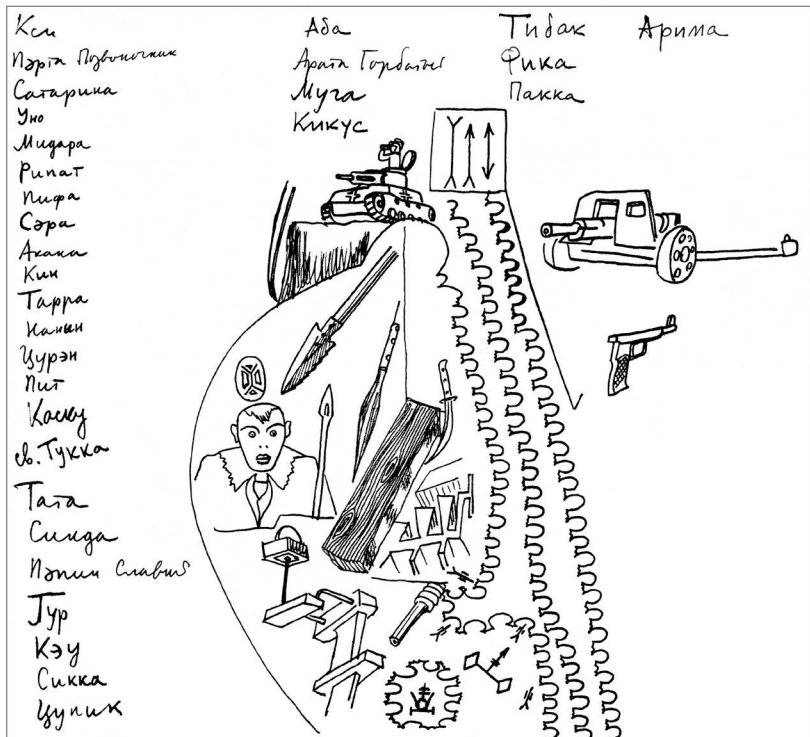 Кси
Пэрта Позвоночник
Сатарина
Уно
Мидара
Рипат
Пифа
Сэра
Акана
Кин
Тарра
Нанын
Цурэн
Пит
св. Тукка
Тата
Синда
Пэпин Славный
Гур
Кэу
Сикка
Цупик
Аба
Арата Горбатый
Муга
Кикус
Тибак
Фика
Пакка
Арима